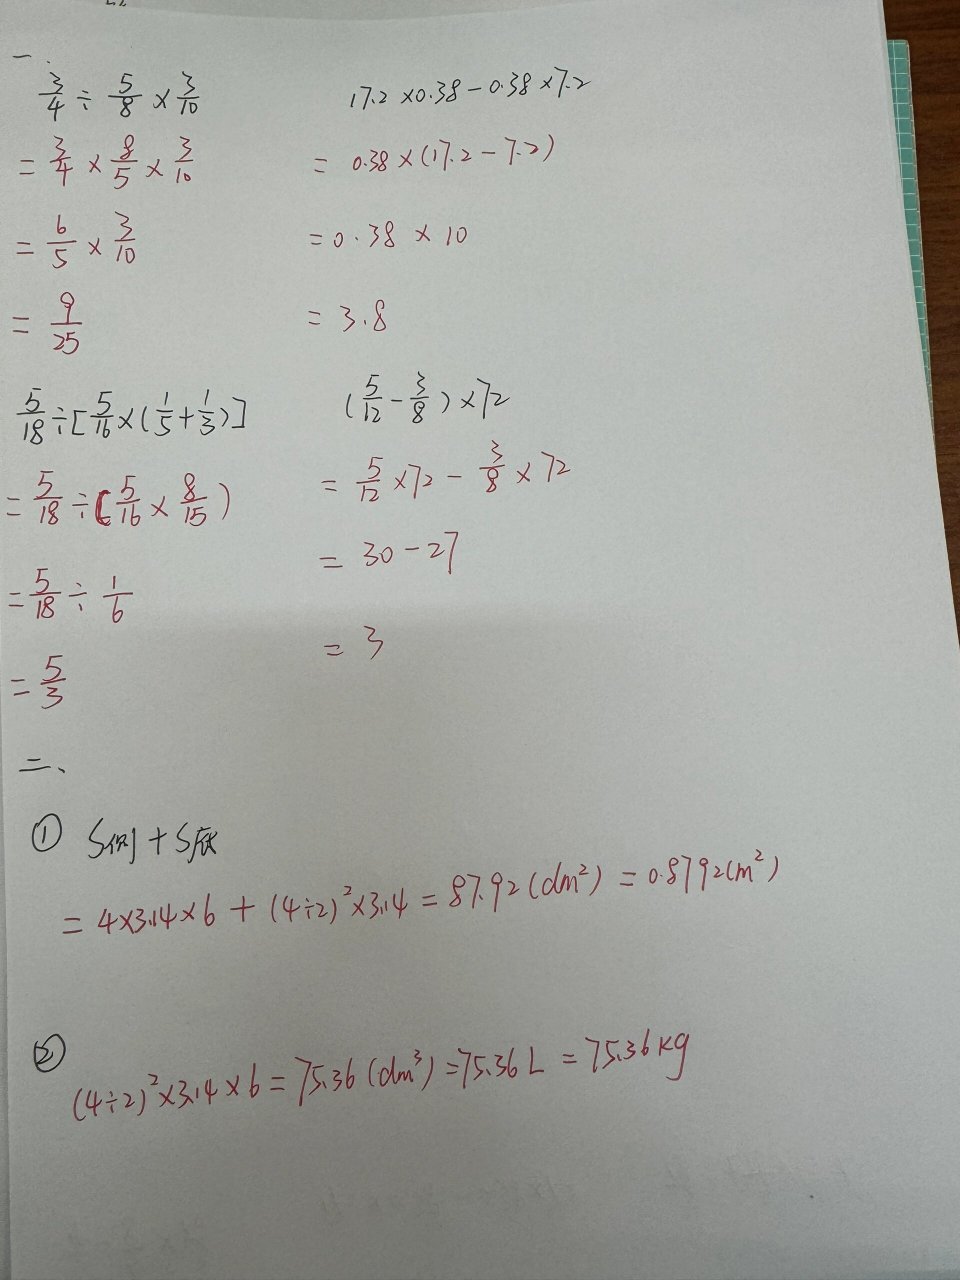 一、
3/4 ÷ 5/8 × 3/10
= 3/4 × 8/5 × 3/10
= 6/5 × 3/10
= 9/25
17.2 × 0.38 - 0.38 × 7.2
= 0.38 × (17.2 - 7.2)
= 0.38 × 10
= 3.8
5/18 ÷ [5/16 × (1/5 + 1/3)]
= 5/18 ÷ (5/16 × 8/15)
= 5/18 ÷ 1/6
= 5/3
(5/12 - 3/8) × 72
= 5/12 × 72 - 3/8 × 72
= 30 - 27
= 3
二、
① S侧 + S底
= 4×3.14×6 + (4÷2)²×3.14 = 87.92(dm²) = 0.8792(m²)
②
(4÷2)²×3.14×6 = 75.36(dm³) = 75.36L = 75.36kg